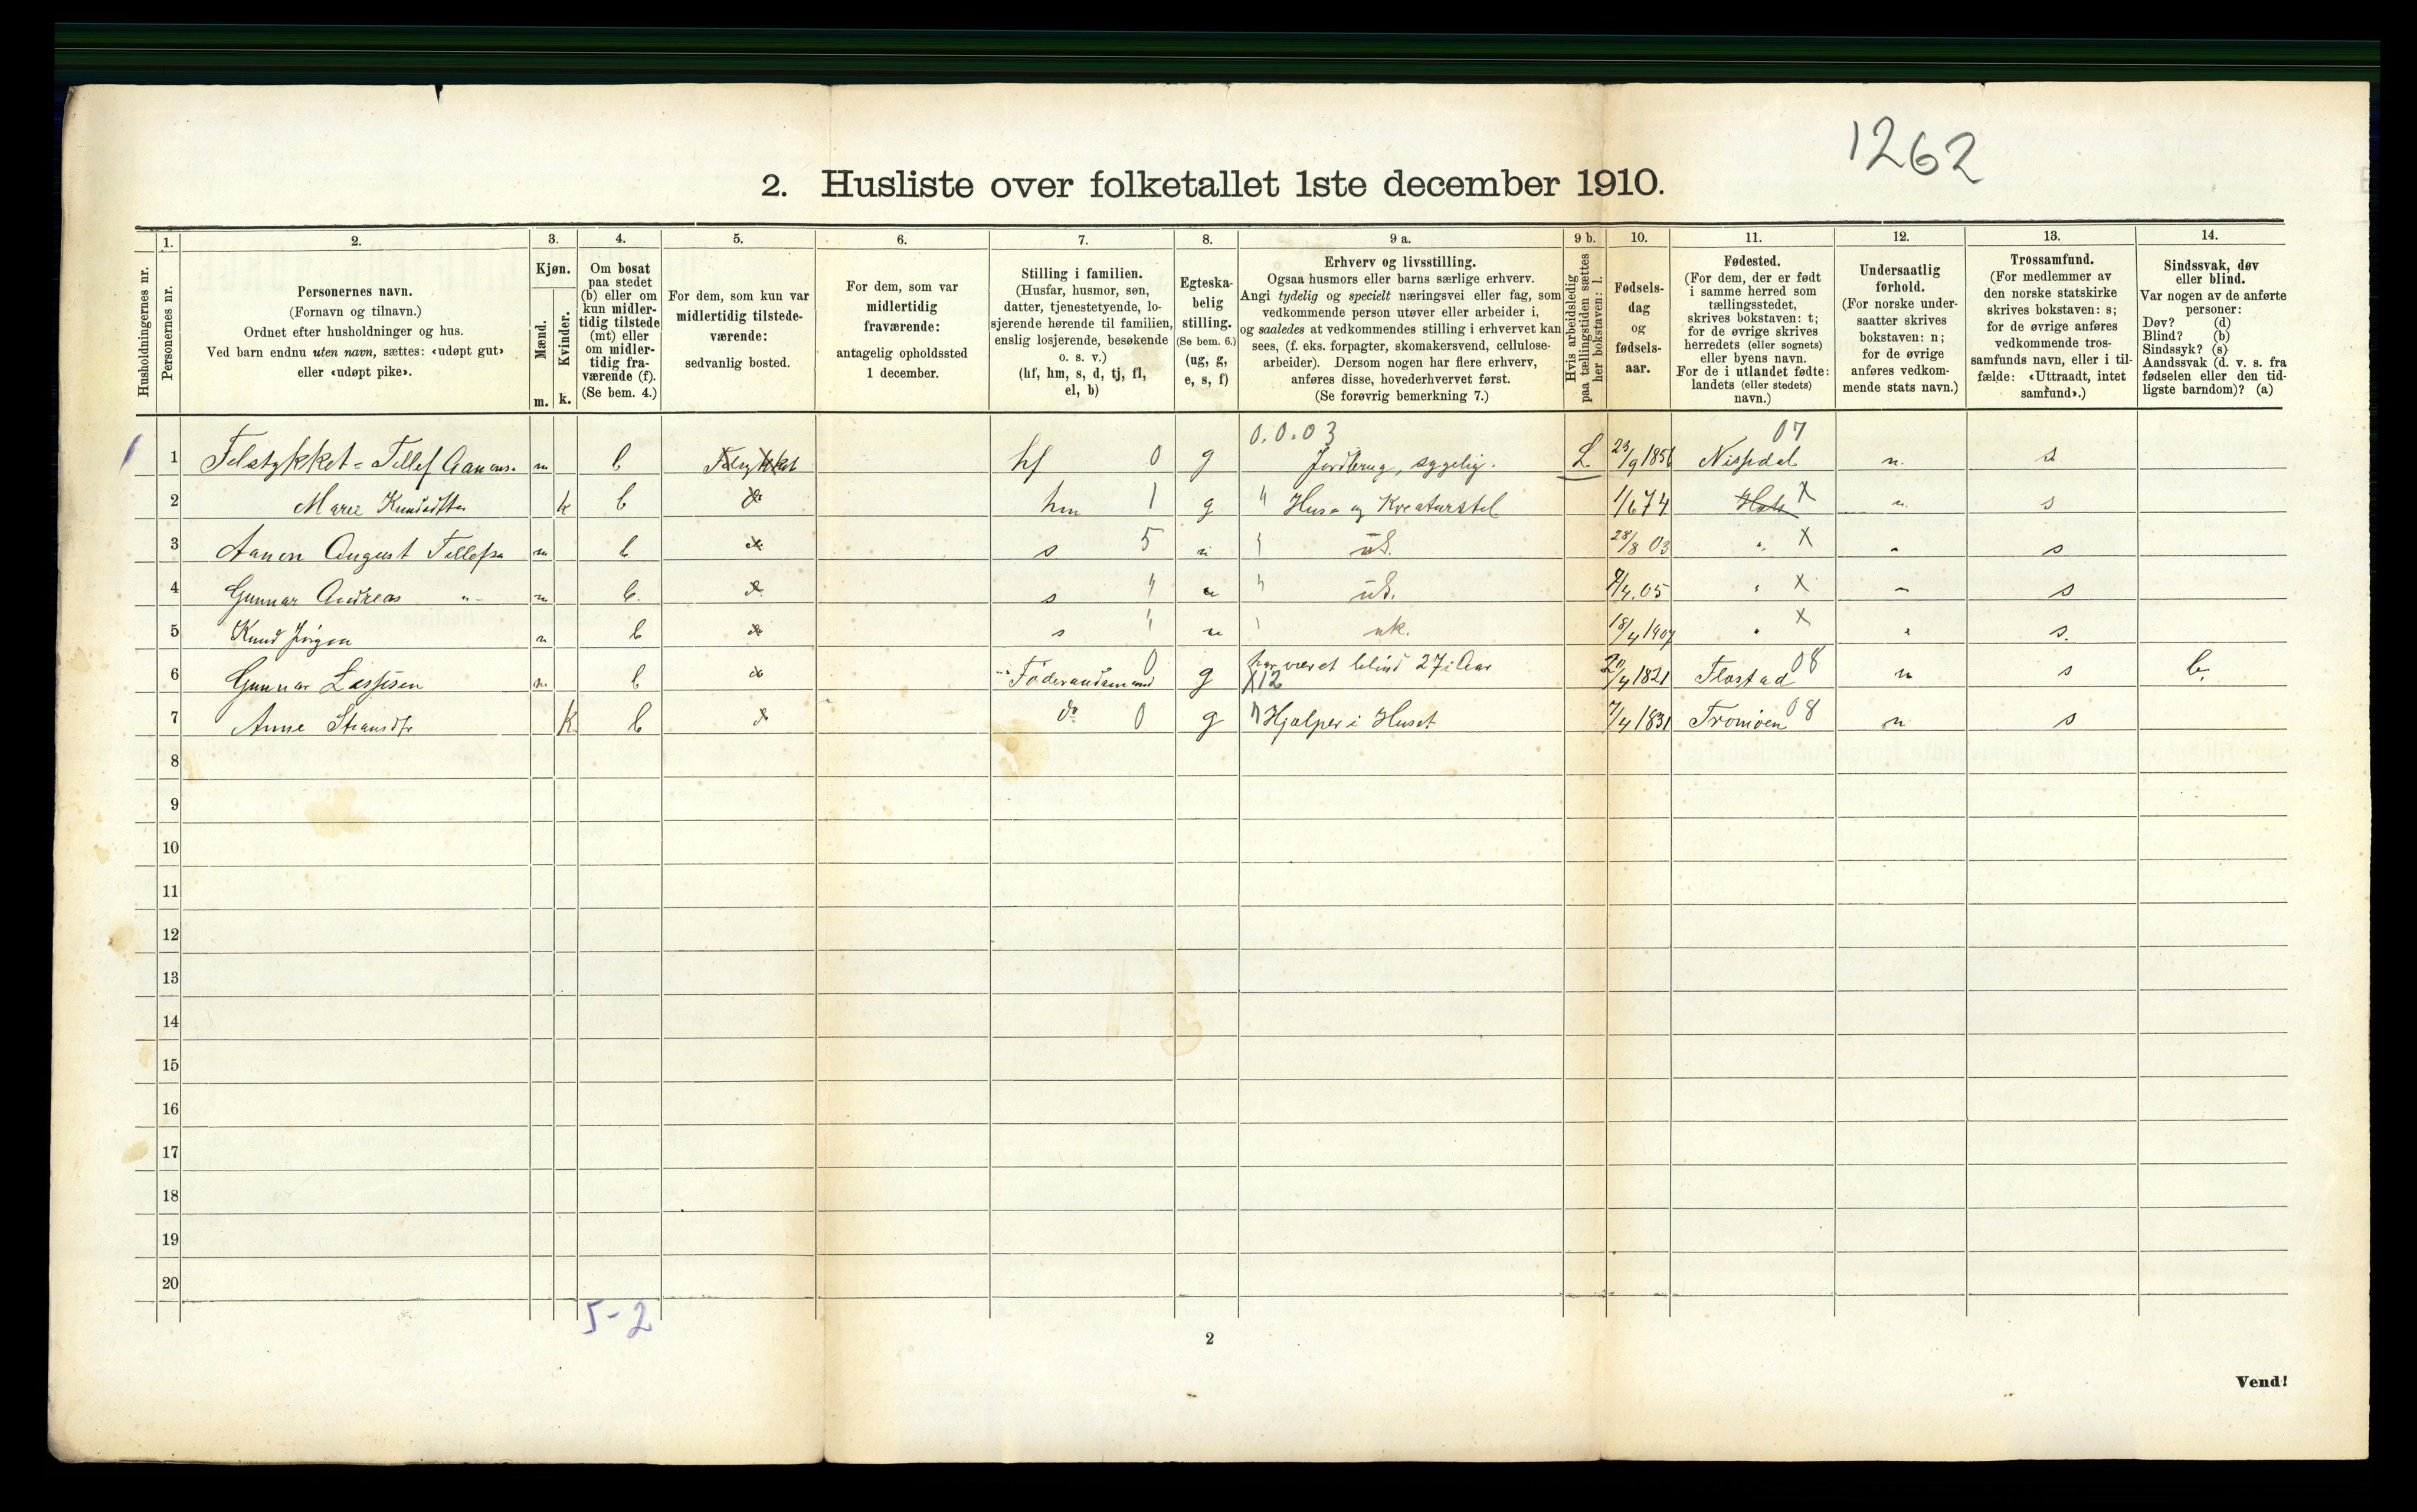 1262
2. Husliste over folketallet 1ste december 1910.
Husholdningernes nr.
1. Personernes nr.
2. Personernes navn.
(Fornavn og tilnavn.)
Ordnet efter husholdninger og hus.
Ved barn endnu uten navn, sættes: «udøpt gut»
eller «udøpt pike».
3. Kjøn.
Mænd. m.
Kvinder. k.
4. Om bosat
paa stedet
(b) eller om
kun midler-
tidig tilstede
(mt) eller
om midler-
tidig fra-
værende (f).
(Se bem. 4.)
5. For dem, som kun var
midlertidig tilstede-
værende:
sedvanlig bosted.
6. For dem, som var
midlertidig
fraværende:
antagelig opholdssted
1 december.
7. Stilling i familien.
(Husfar, husmor, søn,
datter, tjenestetyende, lo-
sjerende hørende til familien,
enslig losjerende, besøkende
o. s. v.)
(hf, hm, s, d, tj, fl,
el, b)
8. Egteska-
belig
stilling.
(Se bem. 6.)
(ug, g,
e, s, f)
9 a. Erhverv og livsstilling.
Ogsaa husmors eller barns særlige erhverv.
Angi tydelig og specielt næringsvei eller fag, som
vedkommende person utøver eller arbeider i,
og saaledes at vedkommendes stilling i erhvervet kan
sees, (f. eks. forpagter, skomakersvend, cellulose-
arbeider). Dersom nogen har flere erhverv,
anføres disse, hovederhvervet først.
(Se forøvrig bemerkning 7.)
9 b. Hvis arbeidsledig
paa tællingstiden sættes
her bokstaven: l.
10. Fødsels-
dag
og
fødsels-
aar.
11. Fødested.
(For dem, der er født
i samme herred som
tællingsstedet,
skrives bokstaven: t;
for de øvrige skrives
herredets (eller sognets)
eller byens navn.
For de i utlandet fødte:
landets (eller stedets)
navn.)
12. Undersaatlig
forhold.
(For norske under-
saatter skrives
bokstaven: n;
for de øvrige
anføres vedkom-
mende stats navn.)
13. Trossamfund.
(For medlemmer av
den norske statskirke
skrives bokstaven: s;
for de øvrige anføres
vedkommende tros-
samfunds navn, eller i til-
fælde: «Uttraadt, intet
samfund».)
14. Sindssvak, døv
eller blind.
Var nogen av de anførte
personer:
Døv? (d)
Blind? (b)
Sindssyk? (s)
Aandssvak (d. v. s. fra
fødselen eller den tid-
ligste barndom)? (a)
0.0.03 07
1 1 Tellef m b hf 0 g Jordbrug, sygelig. L 23/9 1856 Nissedal n. s
2 Marie k b hm 1 g " Hus- og Kreaturstel 1/6 74 Holt X " s
3 Aanen August Tellefsn m b s 5 " 28/8 03 " X " s
4 Gunnar Andreas " m b. s " 7/4. 05 " X " s
5 Knud Jørgen b s " 18/4 1907 " X " s.
6 Gunnar b Føderaadsmand 0 g har været blind 27 i Aar X12 20/4 1821 Flostad 08 n s b.
7 Anne k b do 0 g " Hjælper i Huset 7/4 1831 Tromøen 08 n s
8
9
10
11
12
13
14
15
16
17
18
19
20
5-2
2
Vend!